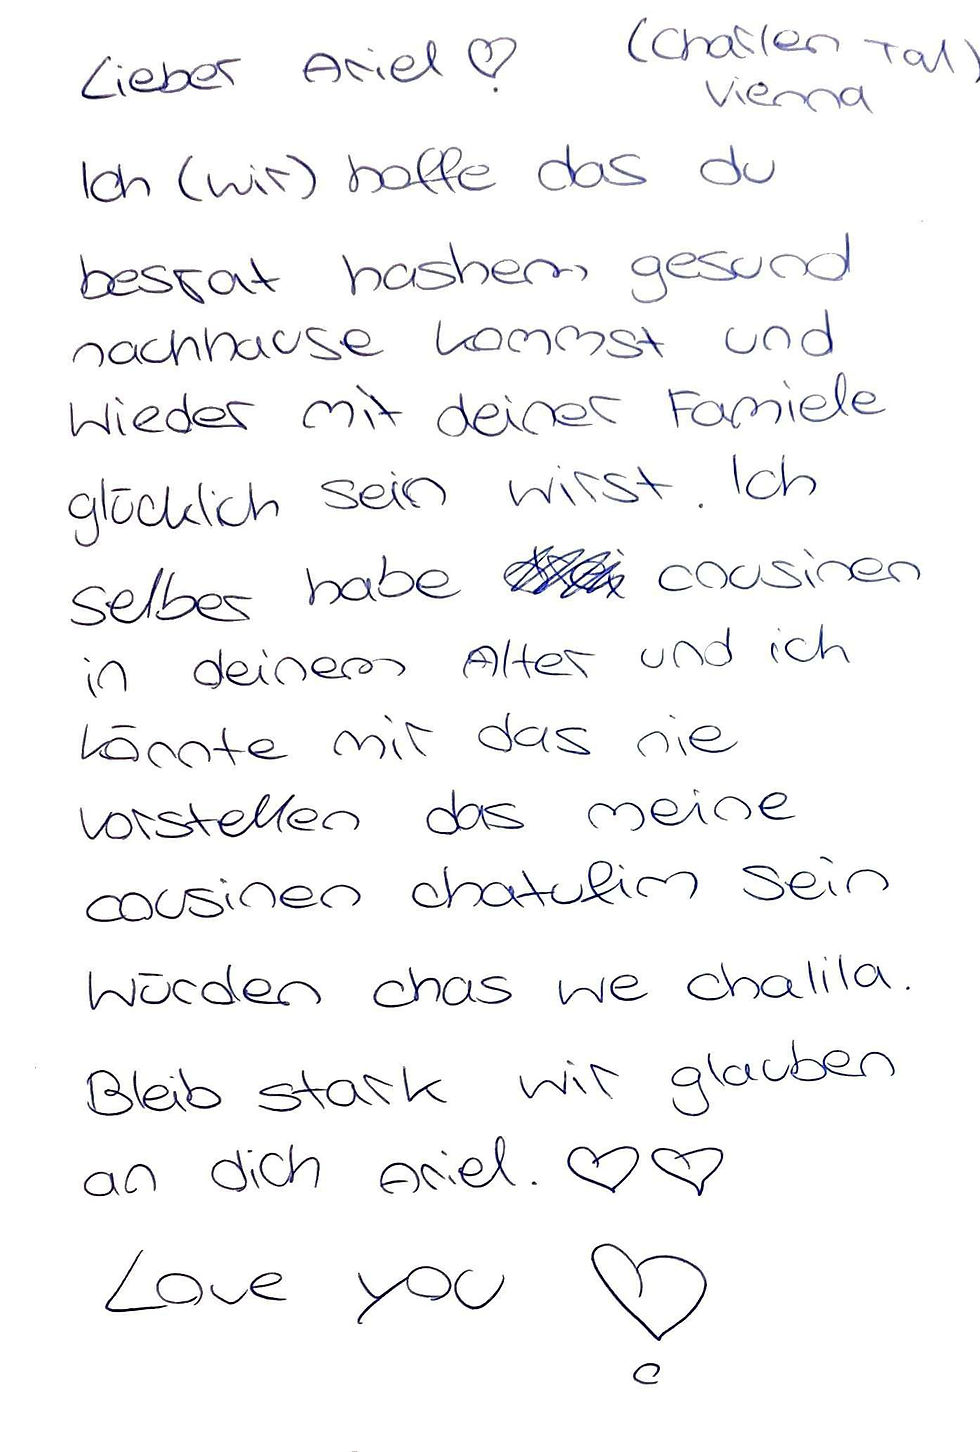 Lieber Ariel ♡ (Charlen Tal)
Vienna
Ich (wir) hoffe das du
besrat hashem gesund
nachhause kommst und
Wieder mit deiner Famiele
glücklich sein wirst. Ich
selber habe cousinen
in deinem Alter und ich
könnte mir das nie
vorstellen das meine
cousinen chatufim sein
würden chas we chalila.
Bleib stark wir glauben
an dich Ariel. ♡♡
Love you ♡
c